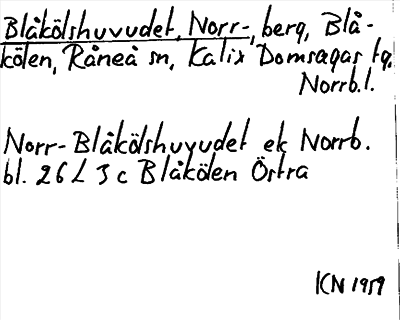 Blåkölshuvudet, Norr-, berg, Blå-
kölen, Råneå sn, Kalix Domsagas tg,
Norrb.l.
Norr-Blåkölshuvudet ek Norrb.
bl. 26 L 3 c Blåkölen Östra
KN 1959